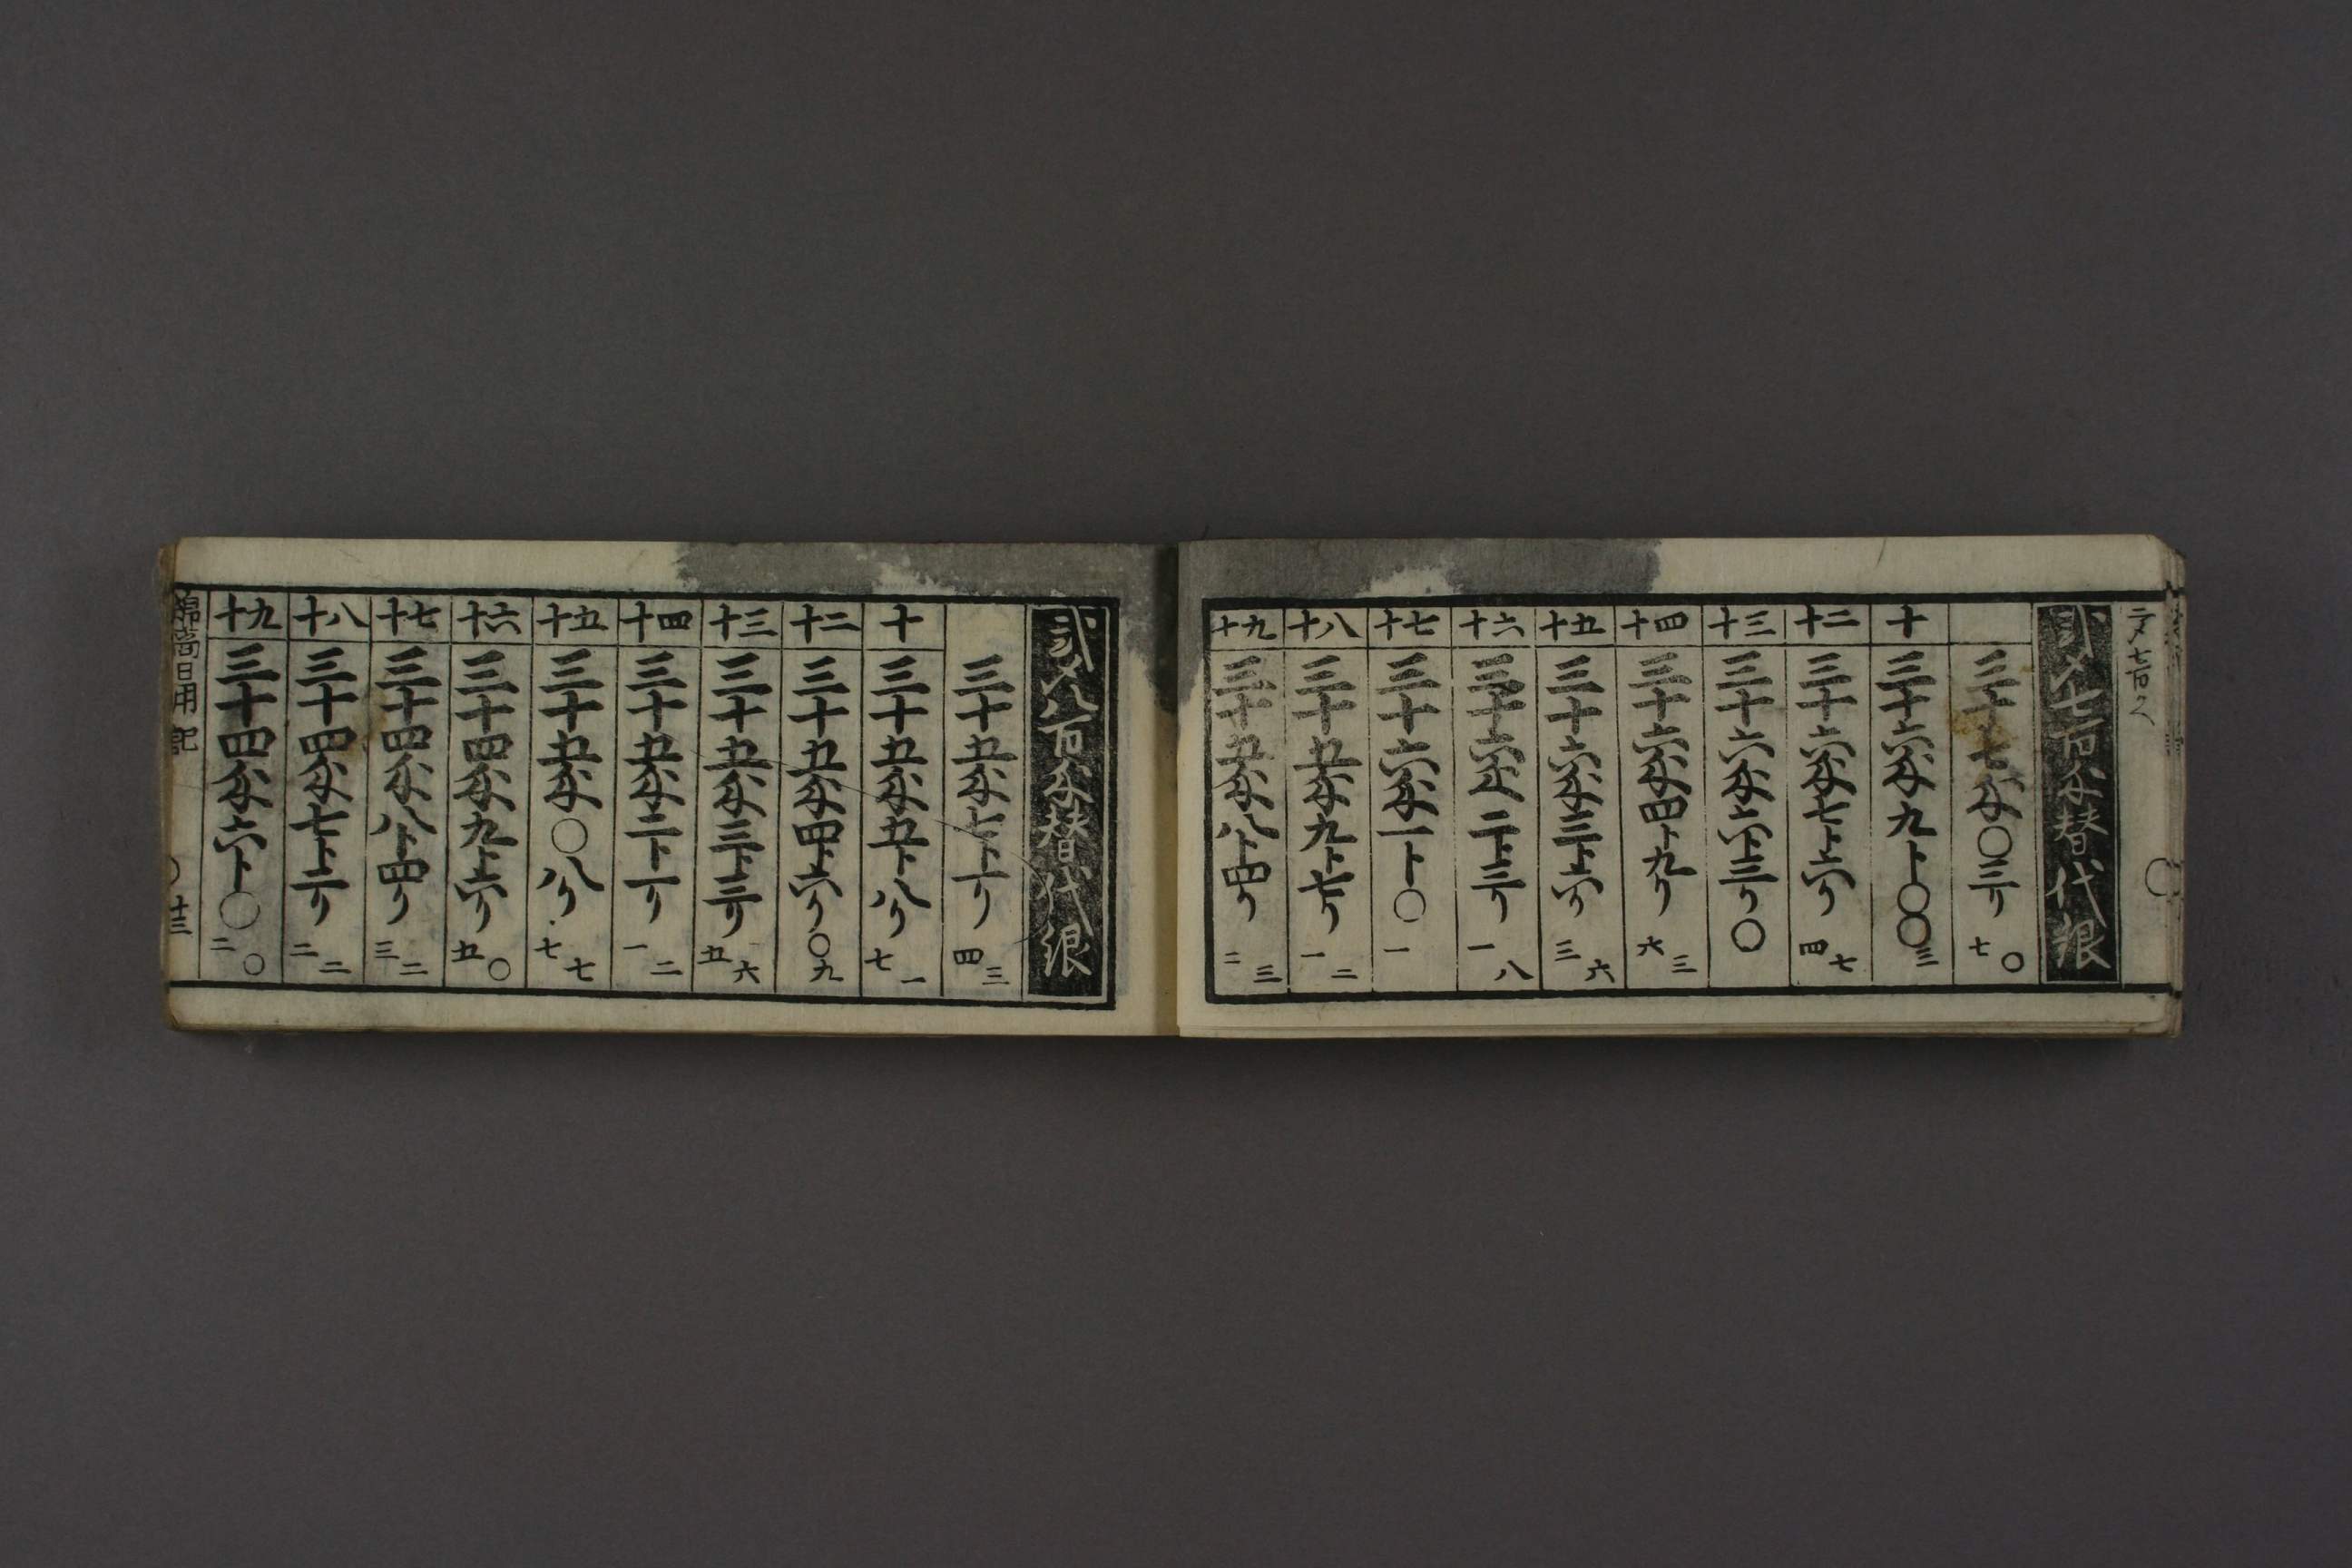 二メ七百文
弐メ七百匁替代銀
三十七匁〇三リ七〇
十 三十六匁九ト〇〇三
十二 三十六匁七ト六リ四七
十三 三十六匁六ト三リ〇
十四 三十六匁四ト九リ六三
十五 三十六匁三ト六リ三六
十六 三十六匁二ト三リ一八
十七 三十六匁一ト〇一
十八 三十五匁九ト七リ一二
十九 三十五匁八ト四リ二三
弐メ八百匁替代銀
三十五匁七ト一リ四三
十 三十五匁五ト八リ七一
十二 三十五匁四ト六リ〇九
十三 三十五匁三ト三リ五六
十四 三十五匁二ト一リ一二
十五 三十五匁〇八リ七七
十六 三十四匁九ト六リ五〇
十七 三十四匁八ト四リ三二
十八 三十四匁七ト二リ二二
十九 三十四匁六ト〇二〇
日用記